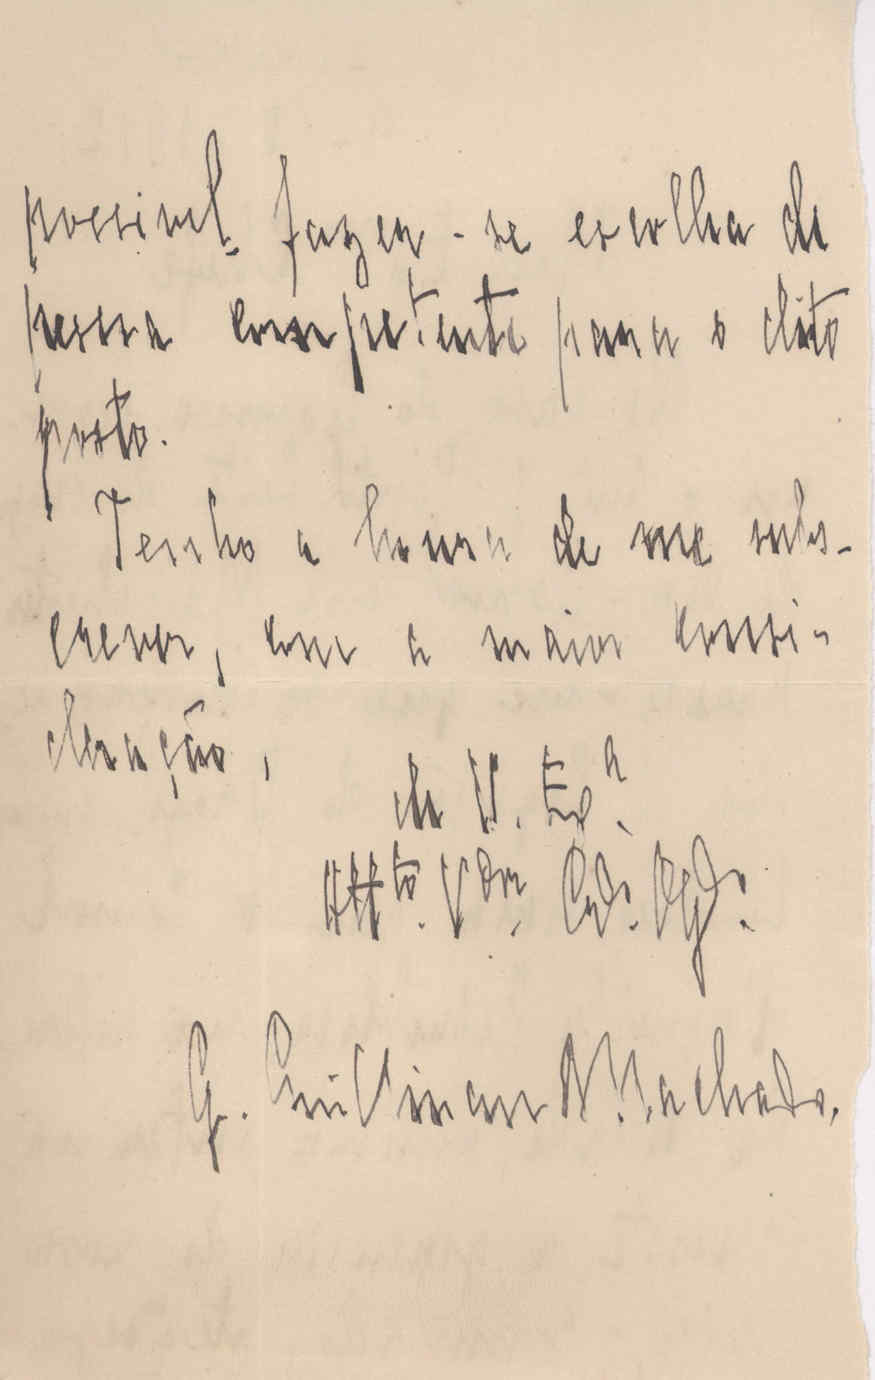 possivel fazer-se escolha de
pessoa competente para o dito
posto.
Tenho a honra de me subs-
crever, com a maior consi-
deração,
de V. Exª.
Attº. Vor. Cdo. Obgº.
G. Machado.